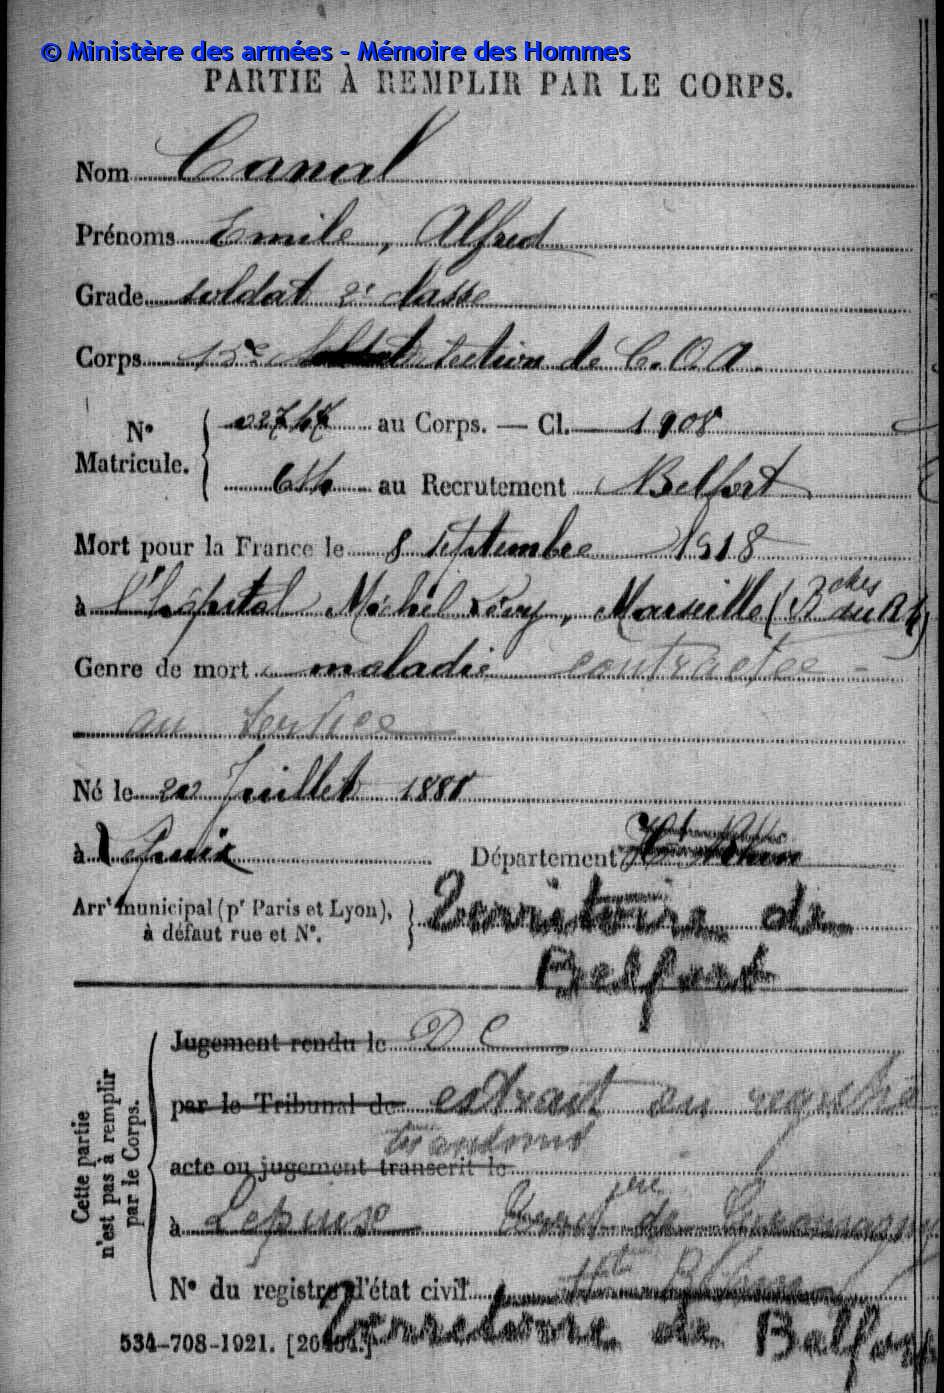 © Ministère des armées - Mémoire des Hommes
PARTIE À REMPLIR PAR LE CORPS.
Nom Canal
Prénoms Emile, Alfred
Grade soldat 2e classe
Corps 15e section de C.O.A.
No Matricule. { 02747 au Corps. — Cl. 1908
614 au Recrutement Belfort
Mort pour la France le 8 septembre 1918
à l'hôpital Michel Lévy, Marseille (Bches du Rh)
Genre de mort maladie contractée
au service
Né le 20 Juillet 1888
à Lepuix Département Ht Rhin
Arrt municipal (pr Paris et Lyon), à défaut rue et No. } Territoire de
Belfort
Cette partie n'est pas à remplir par le Corps.
Jugement rendu le D C
par le Tribunal de extrait du registre
acte ou jugement transcrit le transmis
à Lepuix de Giromagny
No du registre d'état civil Ht Rhin
Territoire de Belfort
534-708-1921. [26434.]